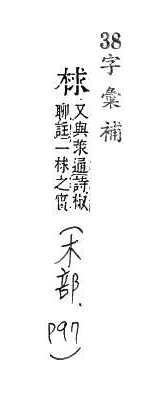 38字彙補
梂
又與莍通詩椒
聊註一梂之實
(木部.
P97)